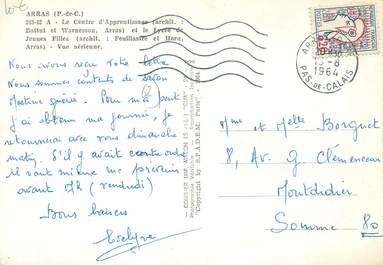 ARRAS (P.-de-C.)
245-42 A - Le Centre d'Apprentissage (archit. :
Battut et Warnesson, Arras) et le Lycée de
Jeunes Filles (archit. : Feuillaste et Haro,
Arras) - Vue aérienne.
Nous avons reçu votre lettre
Nous sommes contents de savoir
Martine guérie. Pour ma part
j'ai obtenu ma journée, je
retournerai avec vous dimanche
matin. S'il y avait contre ordre
il vaut mieux me prévenir
avant (vendredi)
Bons baisers
Evelyne
COMBIER IMP. MACON (S.-L.) "CIM"
Photographie Véritable
"Copyright by S.P.A.D.E.M. Paris"
2
0,25
ARRAS
-8
1964
PAS-DE-CALAIS
Mme et Melle Borguet
8, Av. G. Clémenceau
Montdidier
Somme 80